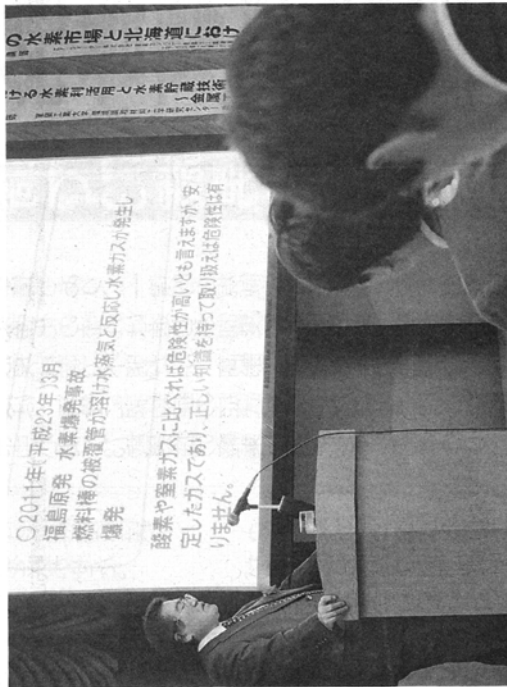 の水素市場と北海道におけ
ける水素利活用と水素貯蔵技術
～金属
〇2011年(平成23年)3月
福島原発 水素爆発事故
燃料棒の被覆管が溶け水蒸気と反応し水素ガスが発生し
爆発
酸素や窒素ガスに比べれば危険性が高いとも言えますが、安
定したガスであり、正しい知識を持って取り扱えば危険性は有
りません。